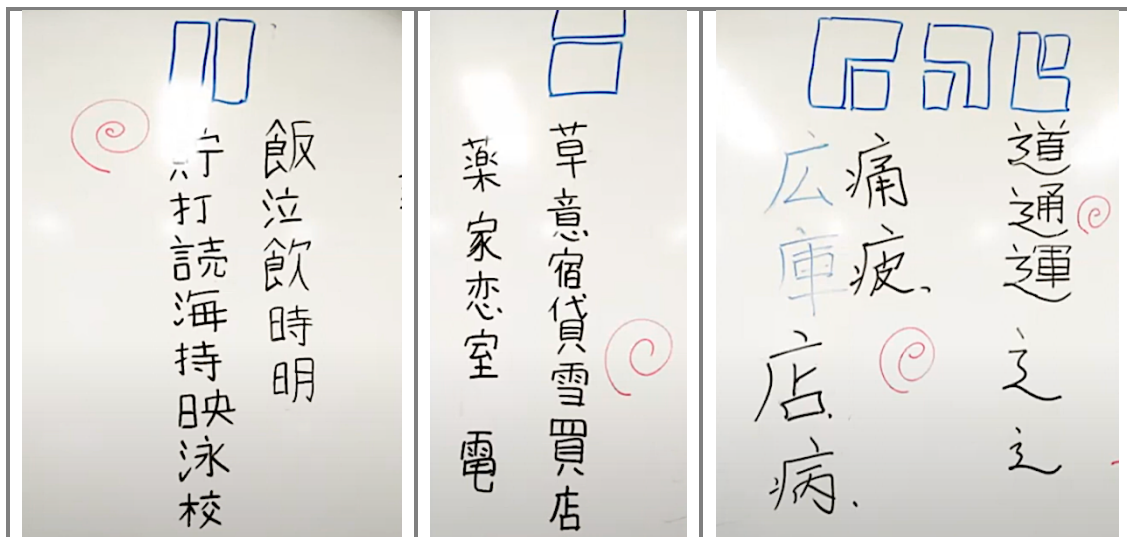 飯泣飲時明
貯打読海持映泳校
草意宿貸雪買店
薬家恋室電
道通運辶辶
痛疲
広庫店病